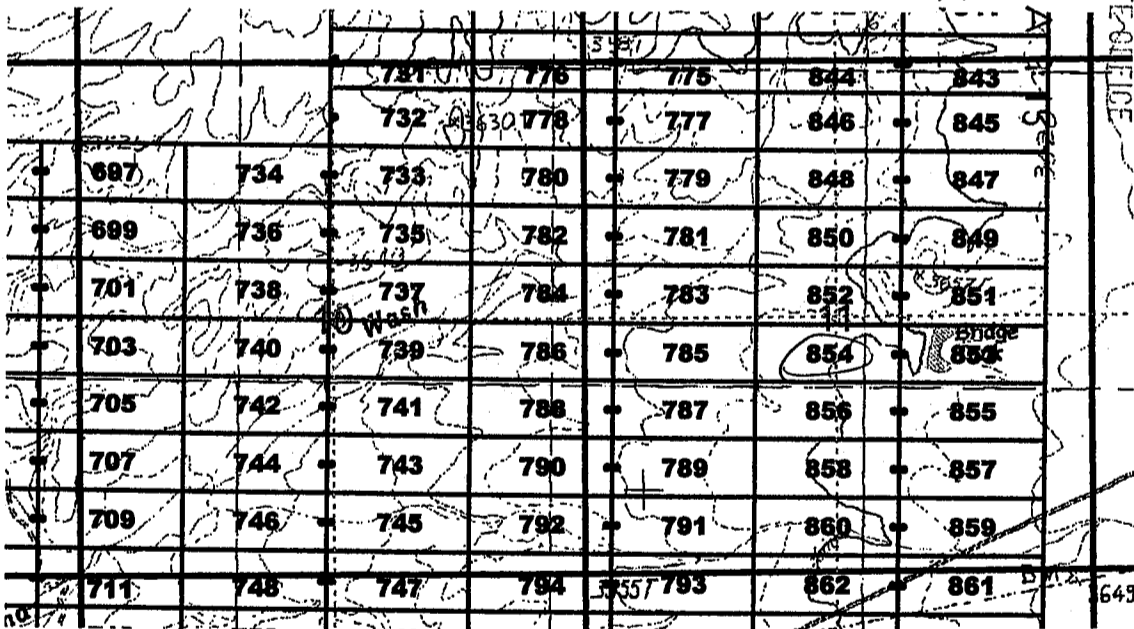 731 776 775 844 843
732 3630 778 777 846 845
697 734 733 780 779 848 847
699 736 735 782 781 850 849
701 738 737 784 783 852 851
Wash 11
703 740 739 786 785 854 853 Bridge
705 742 741 788 787 856 855
707 744 743 790 789 858 857
709 746 745 792 791 860 859
711 748 747 794 793 862 861